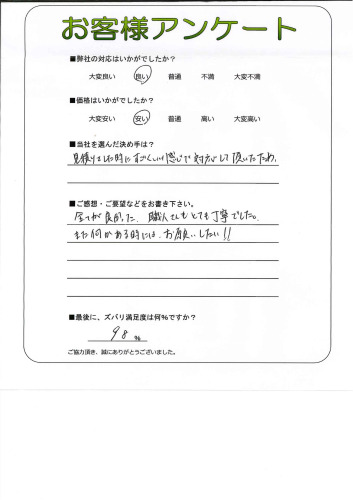 お客様アンケート
■弊社の対応はいかがでしたか?
大変良い 良い 普通 不満 大変不満
■価格はいかがでしたか?
大変安い 安い 普通 高い 大変高い
■当社を選んだ決め手は?
見積りをした時にすごくいい感じで対応して頂いたため。
■ご感想・ご要望などをお書き下さい。
全てが良かった。職人さんもとても丁寧でした。
また何かある時には、お願いしたい!!
■最後に、ズバリ満足度は何%ですか?
98 %
ご協力頂き、誠にありがとうございました。